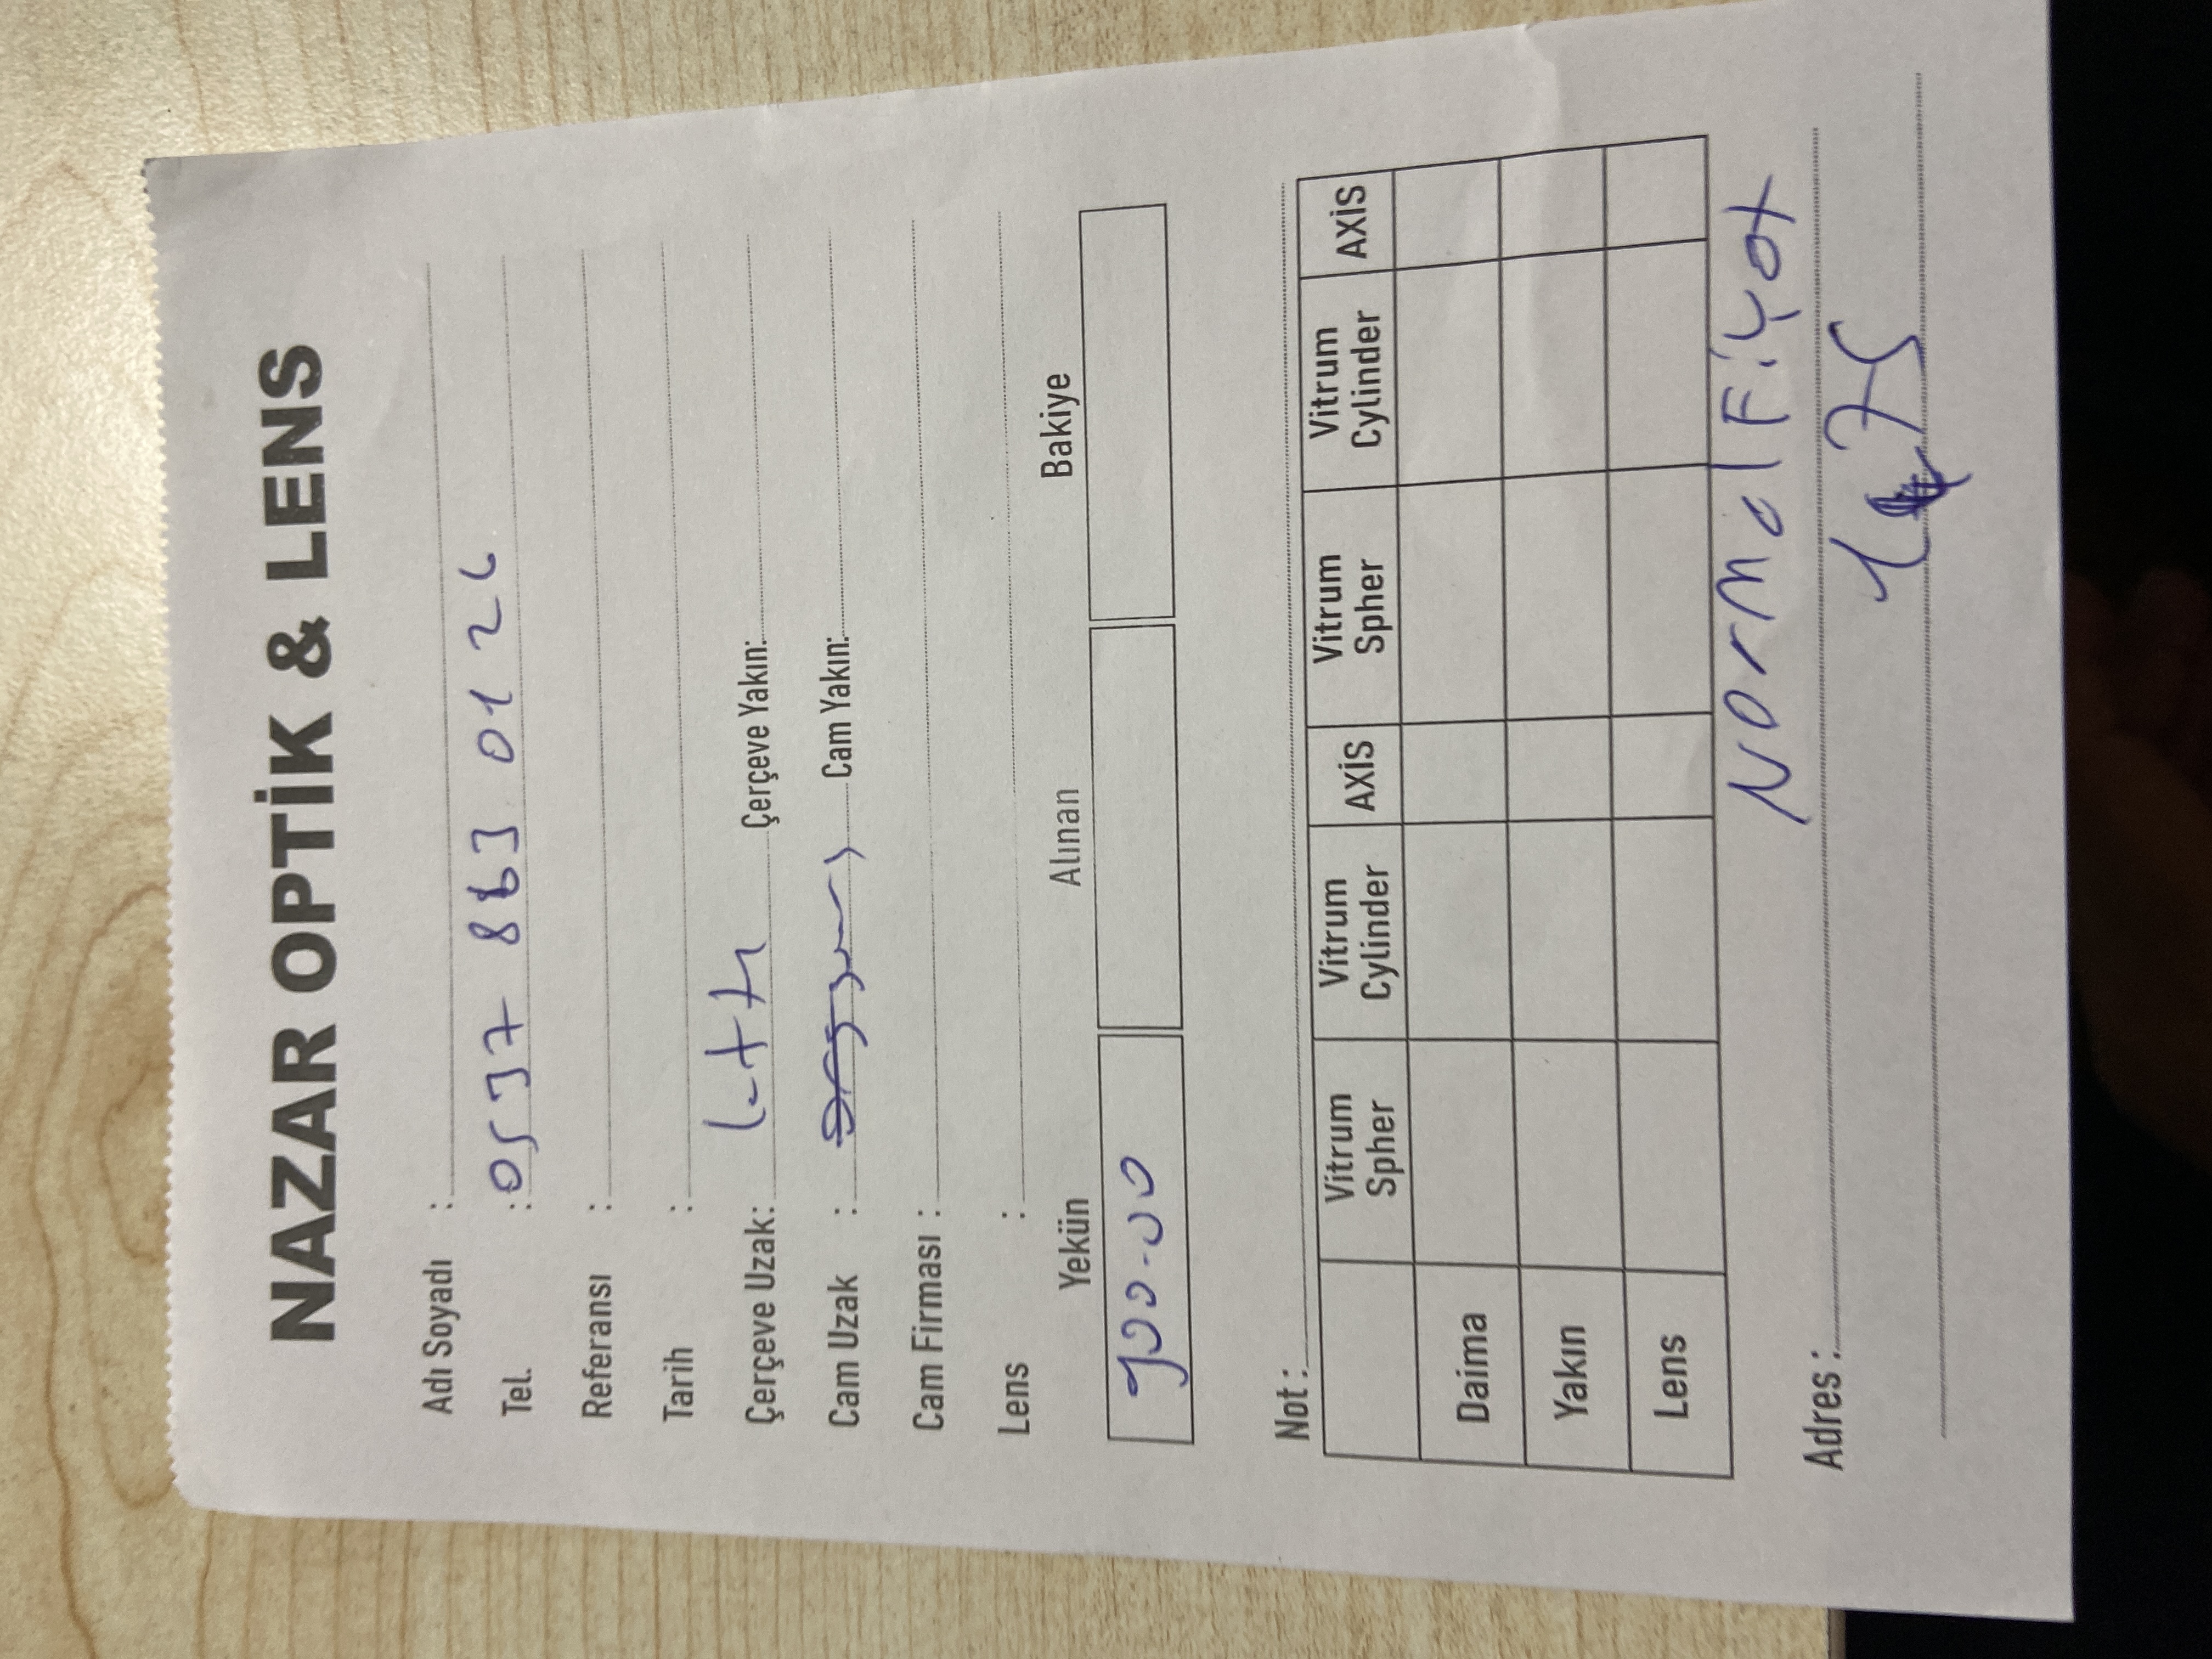 NAZAR OPTİK & LENS
Adı Soyadı :
Tel. : 0537 863 01 26
Referansı :
Tarih :
Çerçeve Uzak: Çerçeve Yakın:
Cam Uzak : Cam Yakın:
Cam Firması :
Lens :
Yekün Alınan Bakiye
900-00
Not :
Vitrum Spher Vitrum Cylinder AXİS Vitrum Spher Vitrum Cylinder AXİS
Daima
Yakın
Lens
Normal Fiyat
Adres :
1475